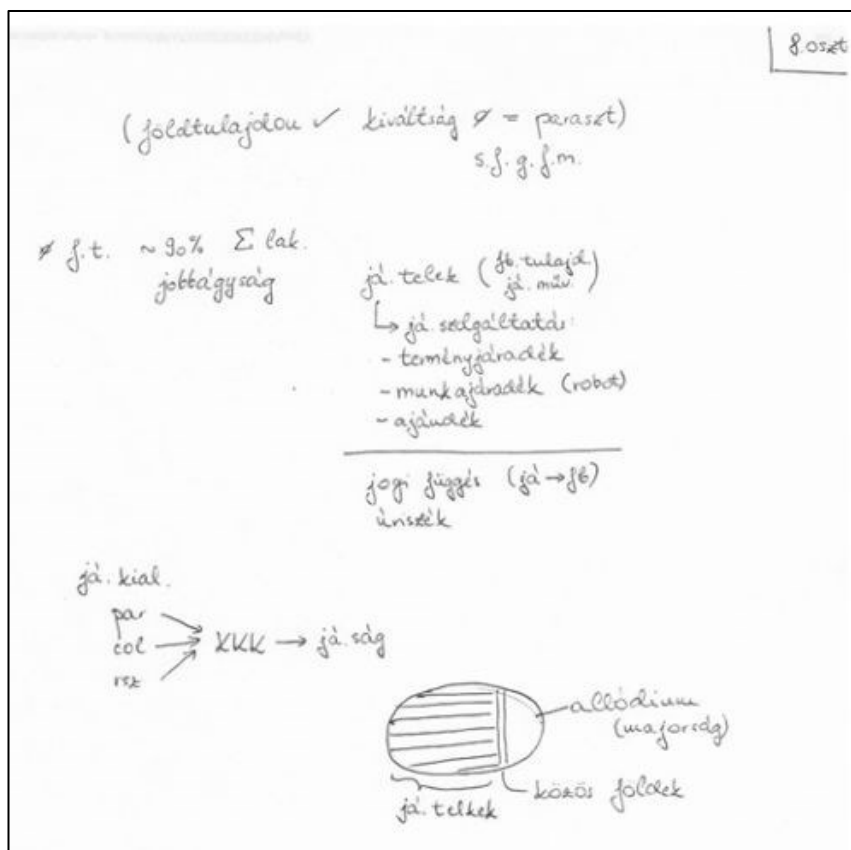 8. oszt
(földtulajdon ✓ kiváltság ∅ = paraszt)
s.f. g.f.m.
∅ f.t. ~90% Σ lak.
jobbágyság
já. telek (fb. tulajd.
já. műv.)
↳ já. szolgáltatás:
- terményjáradék
- munkajáradék (robot)
- ajándék
jogi függés (já → fb)
úriszék
já. kial.
par
col → KKK → já. ság
rsz
allódium
(majorság)
közös földek
já. telkek